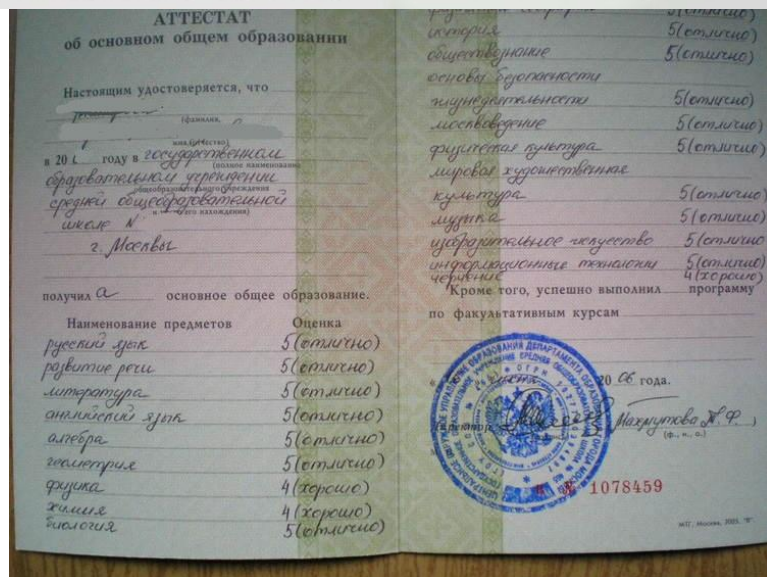 АТТЕСТАТ
об основном общем образовании
Настоящим удостоверяется, что
(фамилия,
имя, отчество)
в 20 году в государственном
(полное наименование
образовательном учреждении
общеобразовательного учреждения
средней общеобразовательной
и его нахождения)
школе №
г. Москвы
получила основное общее образование.
Наименование предметов Оценка
русский язык 5(отлично)
развитие речи 5(отлично)
литература 5(отлично)
английский язык 5(отлично)
алгебра 5(отлично)
геометрия 5(отлично)
физика 4(хорошо)
химия 4(хорошо)
биология 5(отлично)
5(отлично)
история 5(отлично)
обществознание 5(отлично)
основы безопасности
жизнедеятельности 5(отлично)
москвоведение 5(отлично)
физическая культура 5(отлично)
мировая художественная
культура 5(отлично)
музыка 5(отлично)
изобразительное искусство 5(отлично)
информационные технологии 5(отлично)
черчение 4(хорошо)
Кроме того, успешно выполнил программу
по факультативным курсам
2006 года.
Директор Махмутова Т.Ф.
(ф., и., о.)
1078459
МПГ, Москва, 2003, "В"